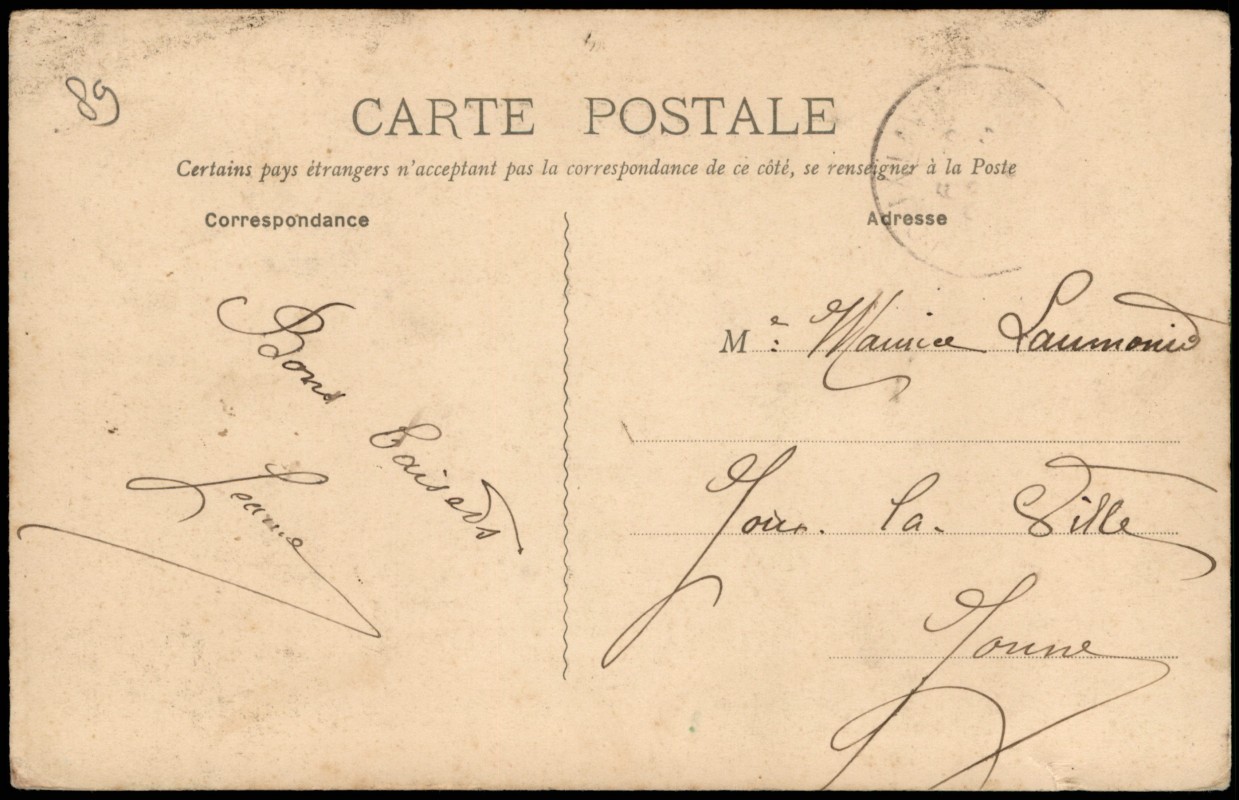 89
CARTE POSTALE
Certains pays étrangers n'acceptant pas la correspondance de ce côté, se renseigner à la Poste
Correspondance
Adresse
Bons
baisers
Jeanne
Me Maurice
Joux. la. Ville
Yonne